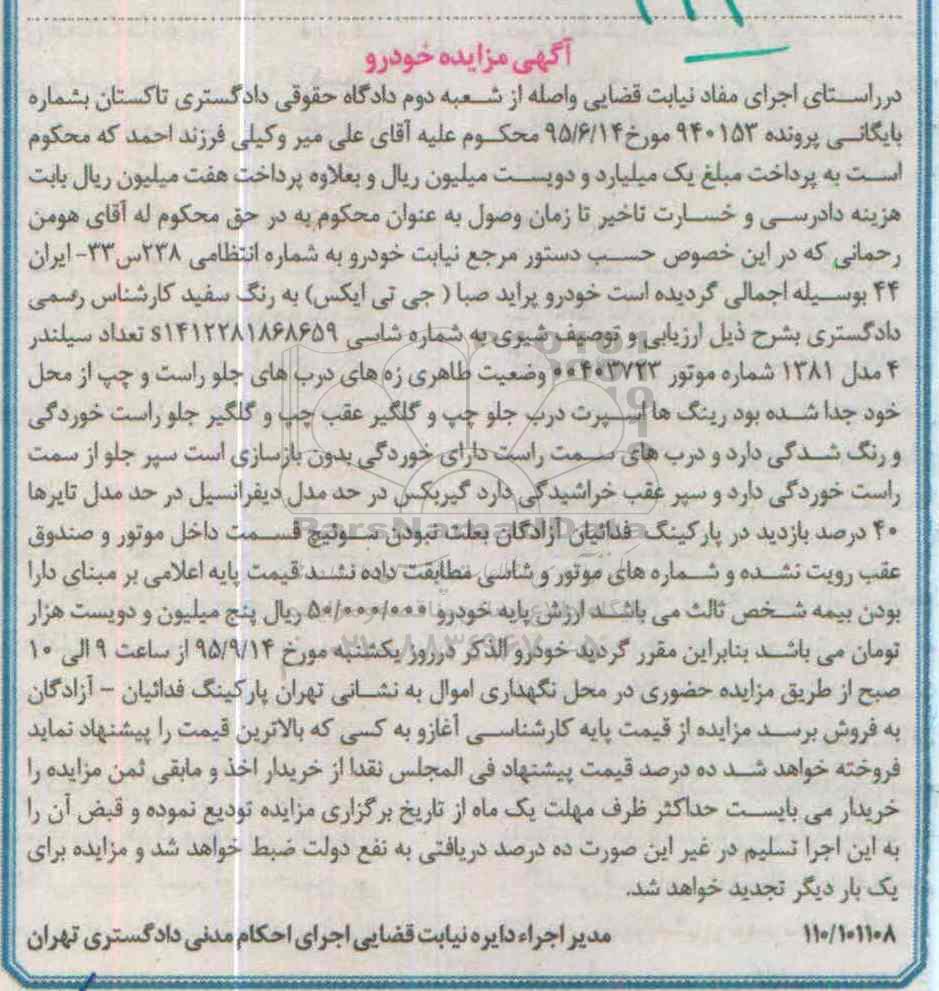 آگهی مزایده خودرو
درراستای اجرای مفاد نیابت قضایی واصله از شعبه دوم دادگاه حقوقی دادگستری تاکستان بشماره
بایگانی پرونده ۹۴۰۱۵۳ مورخ۹۵/۶/۱۴ محکوم علیه آقای علی میر وکیلی فرزند احمد که محکوم
است به پرداخت مبلغ یک میلیارد و دویست میلیون ریال و بعلاوه پرداخت هفت میلیون ریال بابت
هزینه دادرسی و خسارت تاخیر تا زمان وصول به عنوان محکوم به در حق محکوم له آقای هومن
رحمانی که در این خصوص حسب دستور مرجع نیابت خودرو به شماره انتظامی ۲۳۸س۳۳- ایران
۴۴ بوسیله اجمالی گردیده است خودرو پراید صبا ( جی تی ایکس) به رنگ سفید کارشناس رسمی
دادگستری بشرح ذیل ارزیابی و توصیف شیری به شماره شاسی s۱۴۱۲۲۸۱۸۶۸۶۵۹ تعداد سیلندر
۴ مدل ۱۳۸۱ شماره موتور ۰۰۴۰۳۷۲۳ وضعیت ظاهری زه های درب های جلو راست و چپ از محل
خود جدا شده بود رینگ ها اسپرت درب جلو چپ و گلگیر عقب چپ و گلگیر جلو راست خوردگی
و رنگ شدگی دارد و درب های سمت راست دارای خوردگی بدون بازسازی است سپر جلو از سمت
راست خوردگی دارد و سپر عقب خراشیدگی دارد گیربکس در حد مدل دیفرانسیل در حد مدل تایرها
۴۰ درصد بازدید در پارکینگ فدائیان آزادگان بعلت نبودن سوئیچ قسمت داخل موتور و صندوق
عقب رویت نشده و شماره های موتور و شاسی مطابقت داده نشد قیمت پایه اعلامی بر مبنای دارا
بودن بیمه شخص ثالث می باشد ارزش پایه خودرو ۵۰/۰۰۰/۰۰۰ ریال پنج میلیون و دویست هزار
تومان می باشد بنابراین مقرر گردید خودرو الذکر درروز یکشنبه مورخ ۹۵/۹/۱۴ از ساعت ۹ الی ۱۰
صبح از طریق مزایده حضوری در محل نگهداری اموال به نشانی تهران پارکینگ فدائیان – آزادگان
به فروش برسد مزایده از قیمت پایه کارشناسی آغازو به کسی که بالاترین قیمت را پیشنهاد نماید
فروخته خواهد شد ده درصد قیمت پیشنهاد فی المجلس نقدا از خریدار اخذ و مابقی ثمن مزایده را
خریدار می بایست حداکثر ظرف مهلت یک ماه از تاریخ برگزاری مزایده تودیع نموده و قبض آن را
به این اجرا تسلیم در غیر این صورت ده درصد دریافتی به نفع دولت ضبط خواهد شد و مزایده برای
یک بار دیگر تجدید خواهد شد.
۱۱۰/۱۰۱۱۰۸ مدیر اجراء دایره نیابت قضایی اجرای احکام مدنی دادگستری تهران